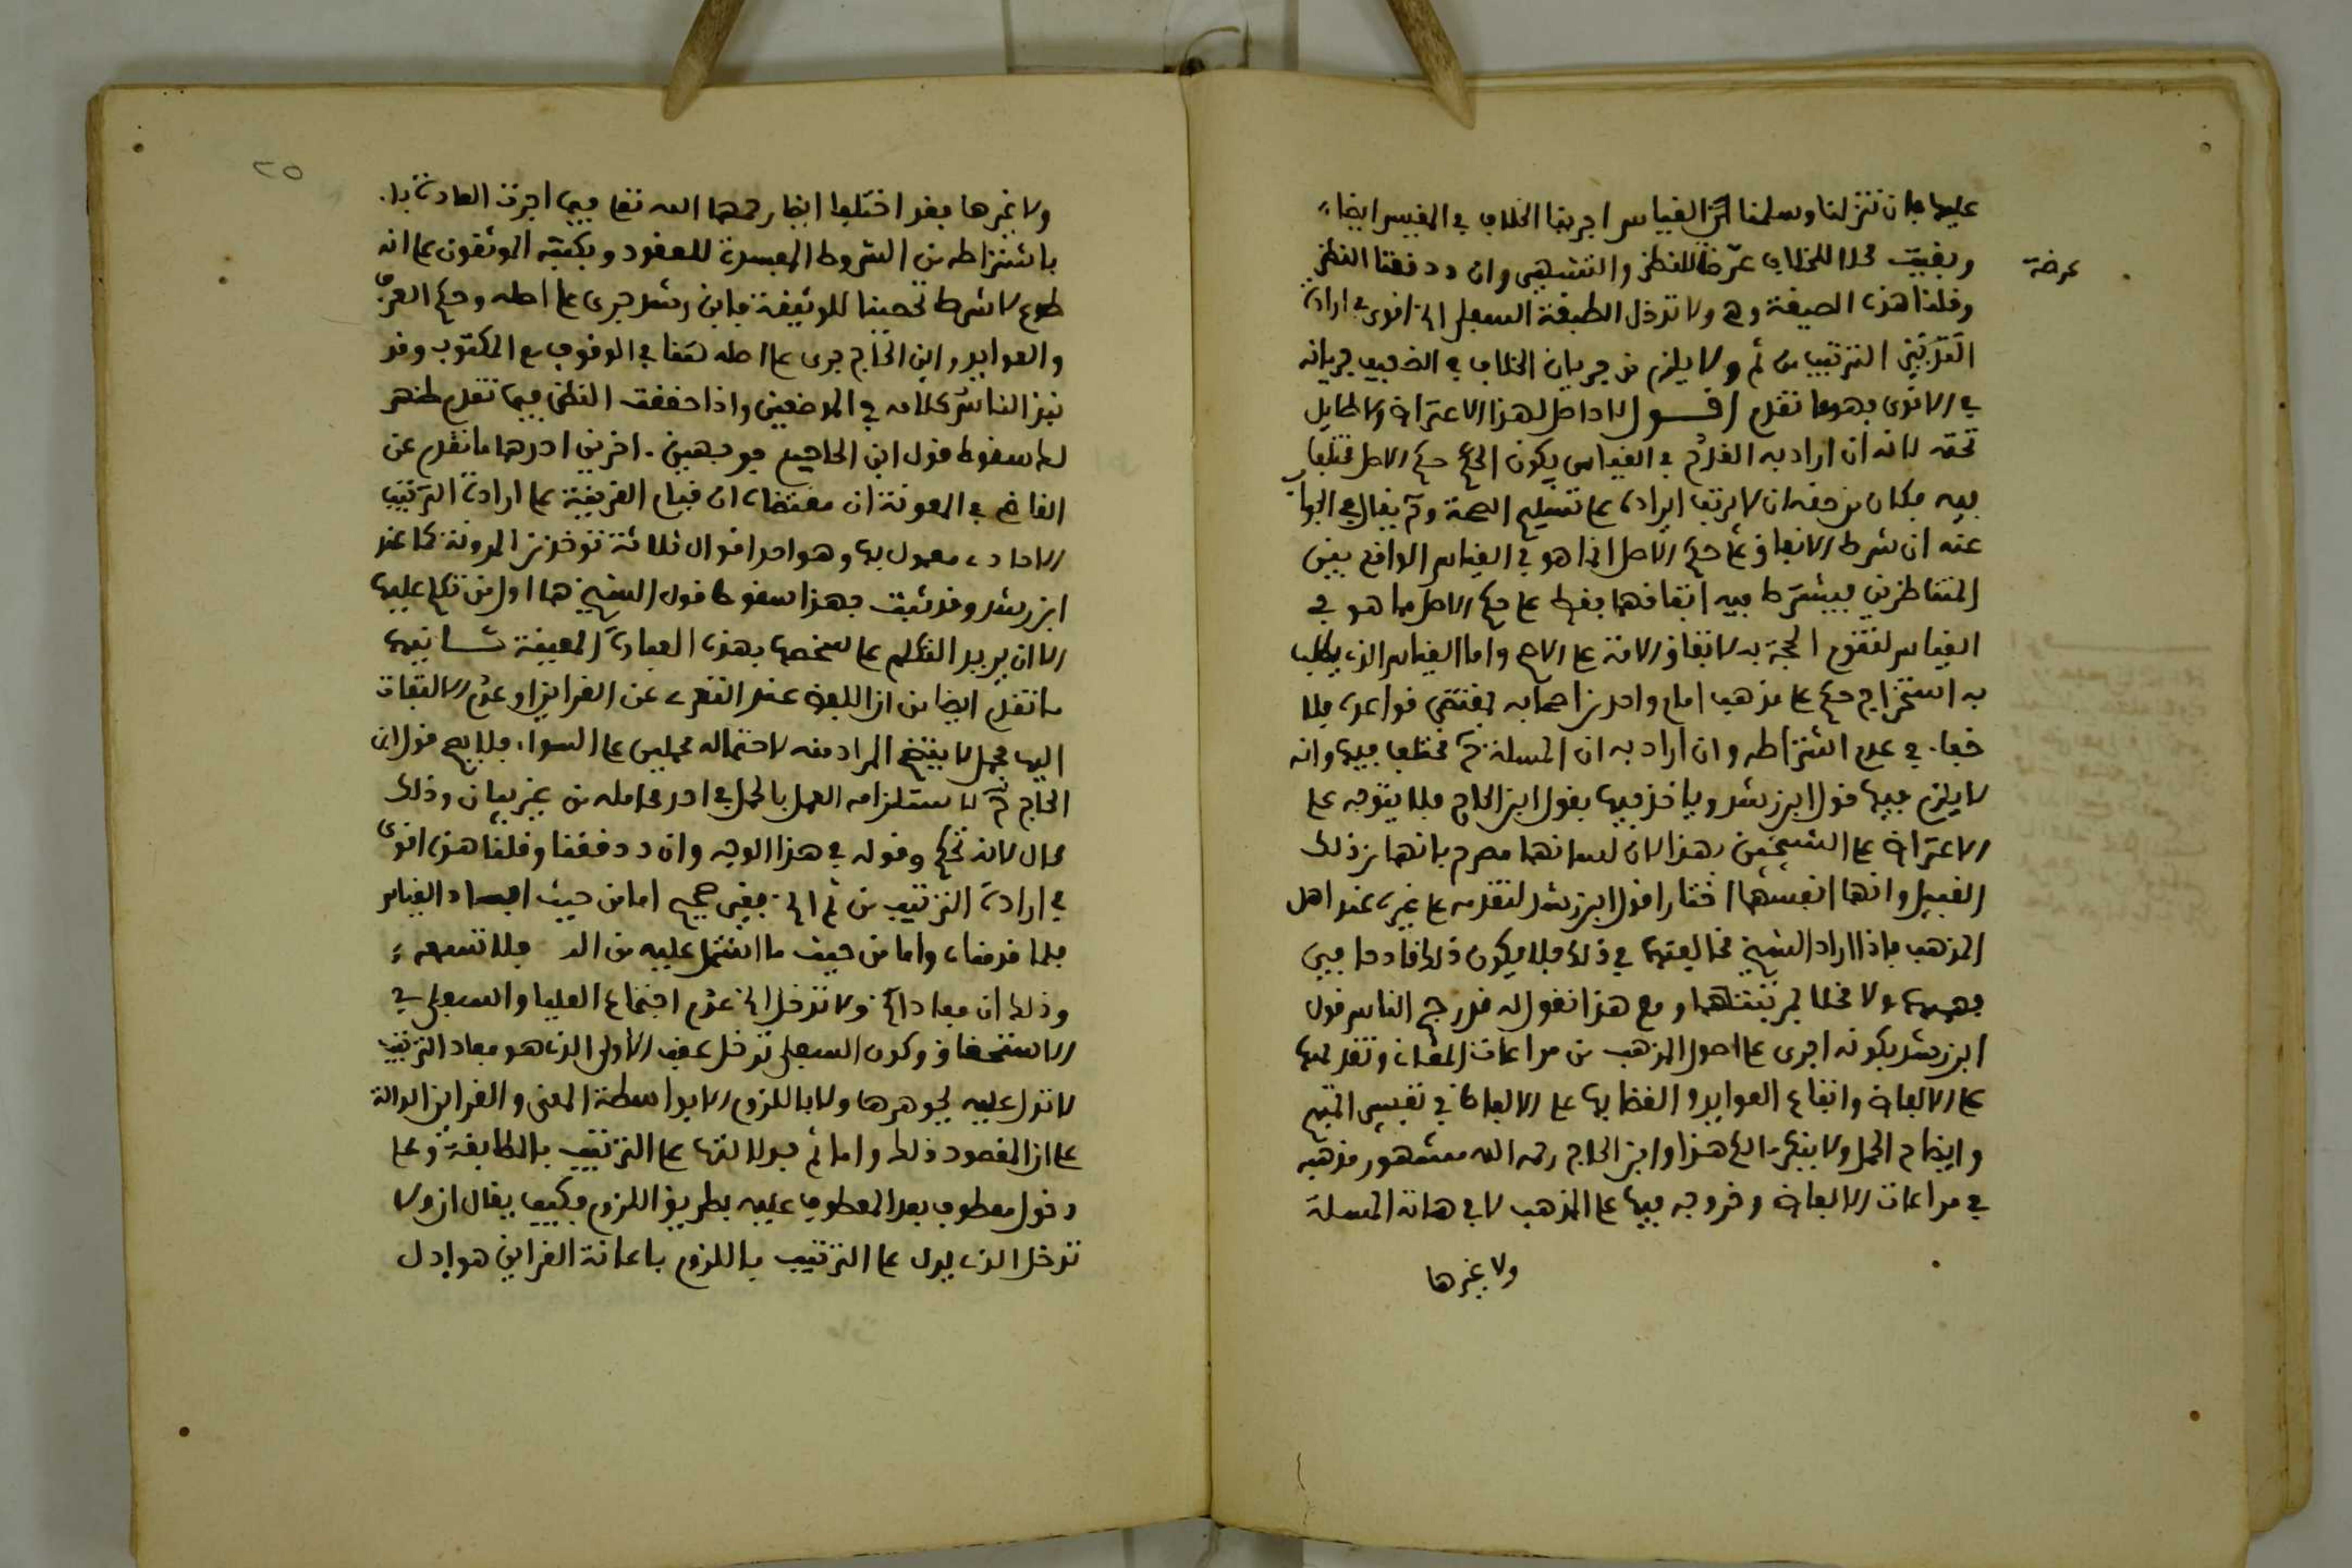 عليها فان تنزلنا وسلمنا ان القياس اجرينا الخلاف في المقيس ايضا
وبقيت محلا للخلاف عرضا للنظر والتشهير وان دققنا النظر
عرضة
وقلنا هذه الصيغة وهي ولا تدخل الطبقة السفلى الخ اقوى في ارادة
الترتيب من ثم ولا يلزم من جريان الخلاف في الضعيف جريانه
في الاقوى فهو ما تقدم اقول لا حاصل لهذا الاعتراض ولا طايل
تحته لانه ان اراد به القدح في القياس بكون حكم الاصل مختلفا
فيه فكان من حقه ان لا يرتب ايراده على تسليم الصحة ثم يقال في الجواب
عنه ان شرط الاتفاق على حكم الاصل انما هو في القياس الواقع بين
المتناظرين فيشترط فيه اتفاقهما فقط على حكم الاصل مما هو في
القياس لتقوم الحجة به لاتفاق الامة على الاصح واما القياس الذي يطلب
به استخراج حكم على مذهب امام واحد من اصحابه بمقتضى قواعده فلا
خفاء في عدم اشتراطه وان اراد به ان المسلة ثم مختلف فيها وانه
لا يلزم فيها قول ابن رشد وياخذ فيها بقول ابن الحاج فلا يتوجه على
الاعتراض على الشيخين بهذا لان لسانهما مصرح بانها من ذلك
القبيل وانهما انفسهما اختارا قول ابن رشد لتقدمه على غيره عند اهل
المذهب فاذا اراد الشيخ مخالفتهما في ذلك فلا يكون ذلك قادحا في
فهمهما ولا مخلا بمرتبتهما ومع هذا نقول له قد رجح الناس قول
ابن رشد بكونه اجرى على اصول المذهب من مراعات المقاصد وتقديمها
على الالفاظ واتباع العوايد والقضا بها على الالفاظ في تفسير المبهم
وايضاح المجمل ولا ينكر مالكي هذا وابن الحاج رحمه الله مشهور مذهبه
في مراعات الالفاظ وخروجه فيها على المذهب لا في هاته المسلة
ولا غيرها
٢٥
ولا غيرها فقد اختلفا ايضا رحمهما الله تعا فيما اجرت العادة
باشتراطه من الشروط المفسدة للعقود ويكتبه الموثقون على انه
طوع لا شرط تحصينا للوثيقة فابن رشد جرى على اصله وحكم العرف
والعوايد وابن الحاج جرى على اصله ايضا في الوقوف مع المكتوب وقد
نبذ الناس كلامه في الموضعين واذا حققت النظر فيما تقدم ظهر
لك سقوط قول ابن الحاج من وجهين اخرين احدهما ما تقدم عن
القاضي في المعونة ان مقتضاه ان قيام القرينة على ارادة الترتيب
الاحاد معمول بها وهو احد اقوال ثلاثة توخذ من المدونة كما عند
ابن رشد وقد ثبت بهذا سقوط قول الشيخ هما اول من تكلم عليها
الا ان يريد التكلم على شخصها بهذه العبارة المعينة ثانيها
ما تقدم ايضا من ان اللفظ عند التعري عن القراين او عدم الالتفات
اليها مجمل لا يتضح المراد منه لاحتماله محملين على السواء فلا يصح قول ابن
الحاج ثم لاستلزامه العمل بالمجمل في احد محامله من غير بيان وذلك
محال لانه تحكم وقوله في هذا الوجه وان دققنا وقلنا هذه اقوى
في ارادة الترتيب من ثم الخ فغير صحيح اما من حيث افساد القياس
فلما قدمناه واما من حيث ما اشتمل عليه من الد فلا تسمعه
وذلك ان مفاد ولا تدخل الخ عدم اجتماع العليا والسفلى في
الاستحقاق وكون السفلى تدخل عقب الاولى الذي هو مفاد الترتيب
لا تدل عليه بجوهرها ولا باللزوم الا بواسطة المعنى والقراين الدالة
على ان المقصود ذلك واما ثم فدلالتها على الترتيب بالمطابقة وعلى
دخول معطوف بعد المعطوف عليه بطريق اللزوم فكيف يقال ان ولا
تدخل الذي يدل على الترتيب باللزوم باعانة القراين هو ادل